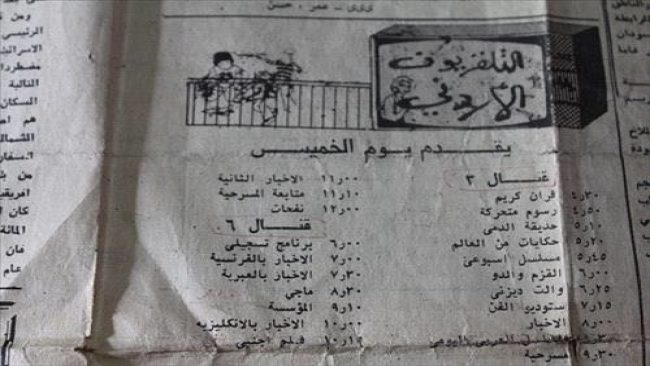 ززى - عمر ، حسن
التلفزيون
الأردني
يقدم يوم الخميس
قنال ٣
٤٫٣٠ قران كريم
٤٫٥٠ رسوم متحركة
٥٫١٠ حديقة الدمى
٥٫٢٠ حكايات من العالم
٥٫٤٥ مسلسل اسبوعي
٦٫٠٠ القزم والدو
٦٫٢٥ والت ديزني
٧٫١٥ ستوديو الفن
٨٫٠٠ الاخبار
العربي اليومي
٩٫٣٠ مسرحية
١١٫٠٠ الاخبار الثانية
١١٫١٠ متابعة المسرحية
١٢٫٠٠ نفحات
قنال ٦
٦٫٠٠ برنامج تسجيلي
٧٫٠٠ الاخبار بالفرنسية
٧٫٣٠ الاخبار بالعبرية
٨٫٣٠ ماجي
٩٫١٠ المؤسسة
١٠٫٠٠ الاخبار بالانكليزيه
١٠٫١٥ فيلم اجنبي
الناطق
الرابطة
سودان
قامة
رسم
للاح
ودة
ومن
الرئيسي
الاسرائيل
مضطردا
التالية
السكان
هم ا
الشمال
٦ـسفار
من
افريقي
كان ا
وقد
فان
عام